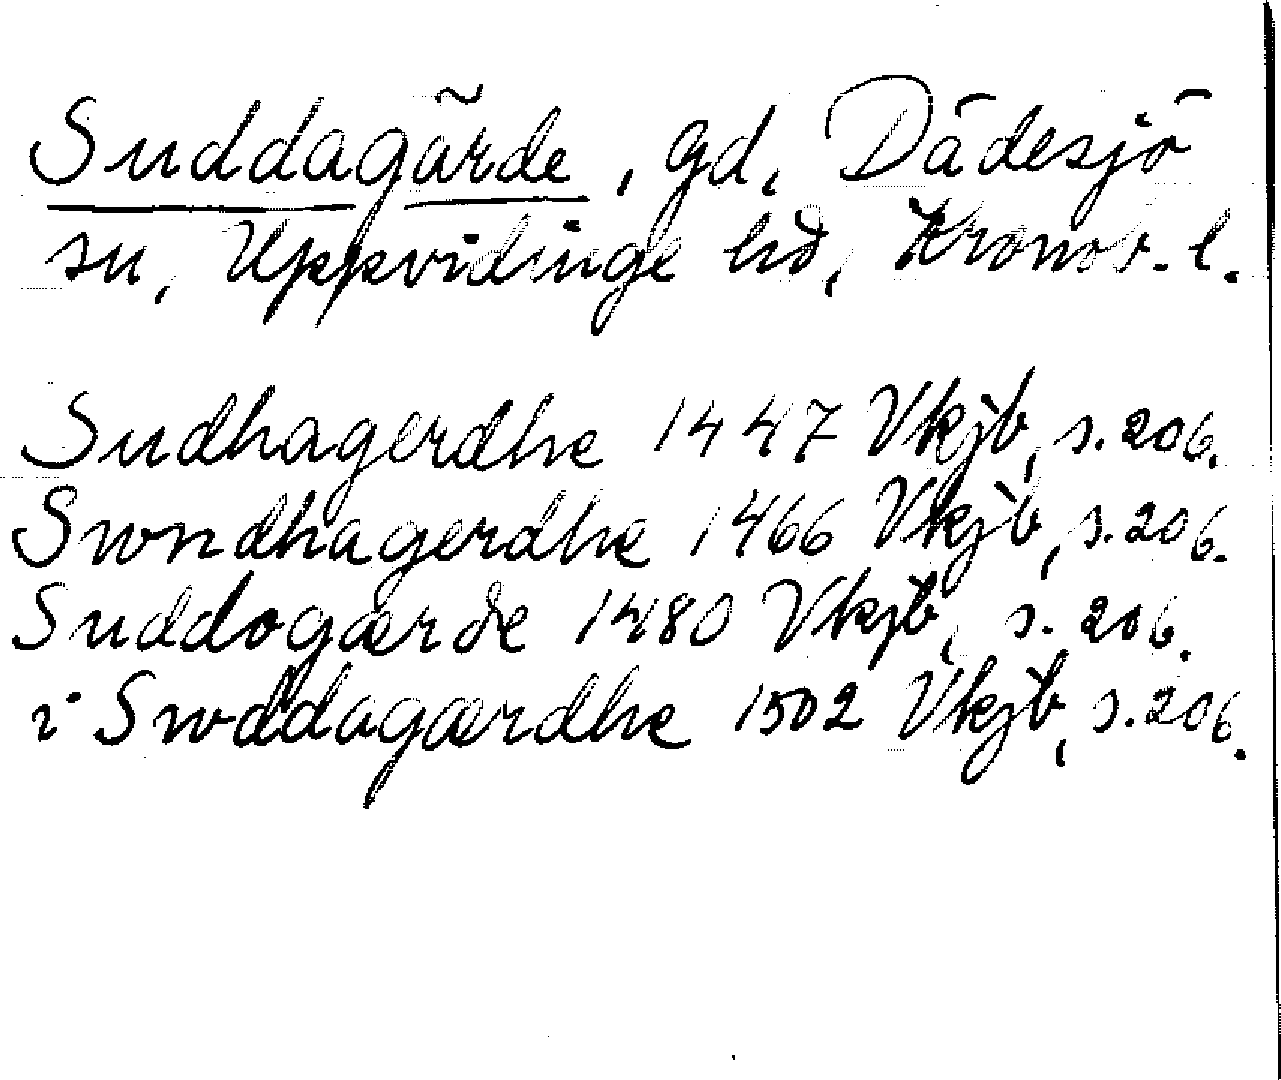 Suddagärde, gd, Dädesjö
sn, Uppvidinge hd, Kronob. l.
Sudhagerdhe 1447 Vkjb, s. 206.
Swndhagerdhe 1466 Vkjb, s. 206.
Suddogærde 1480 Vkjb, s. 206.
i Swddagærdhe 1502 Vkjb, s. 206.